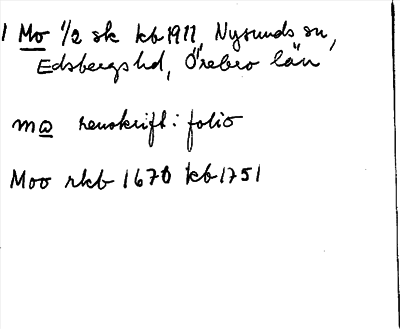 1 Mo 1/2 sk kb 1911, Nysunds sn,
Edsbergs hd, Örebro län
mo renskrift: folio
Moo rkb 1670 kb 1751